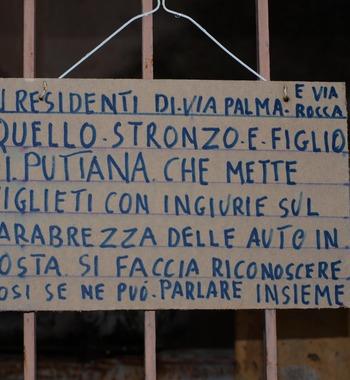 I RESIDENTI DI·VIA PALMA· E VIA ROCCA
QUELLO·STRONZO·E·FIGLIO
I.PUTTANA CHE METTE
IGLIETI CON INGIURIE SUL
ARABREZZA DELLE AUTO IN
OSTA. SI FACCIA RICONOSCERE.
OSI SE NE PUÓ. PARLARE INSIEME